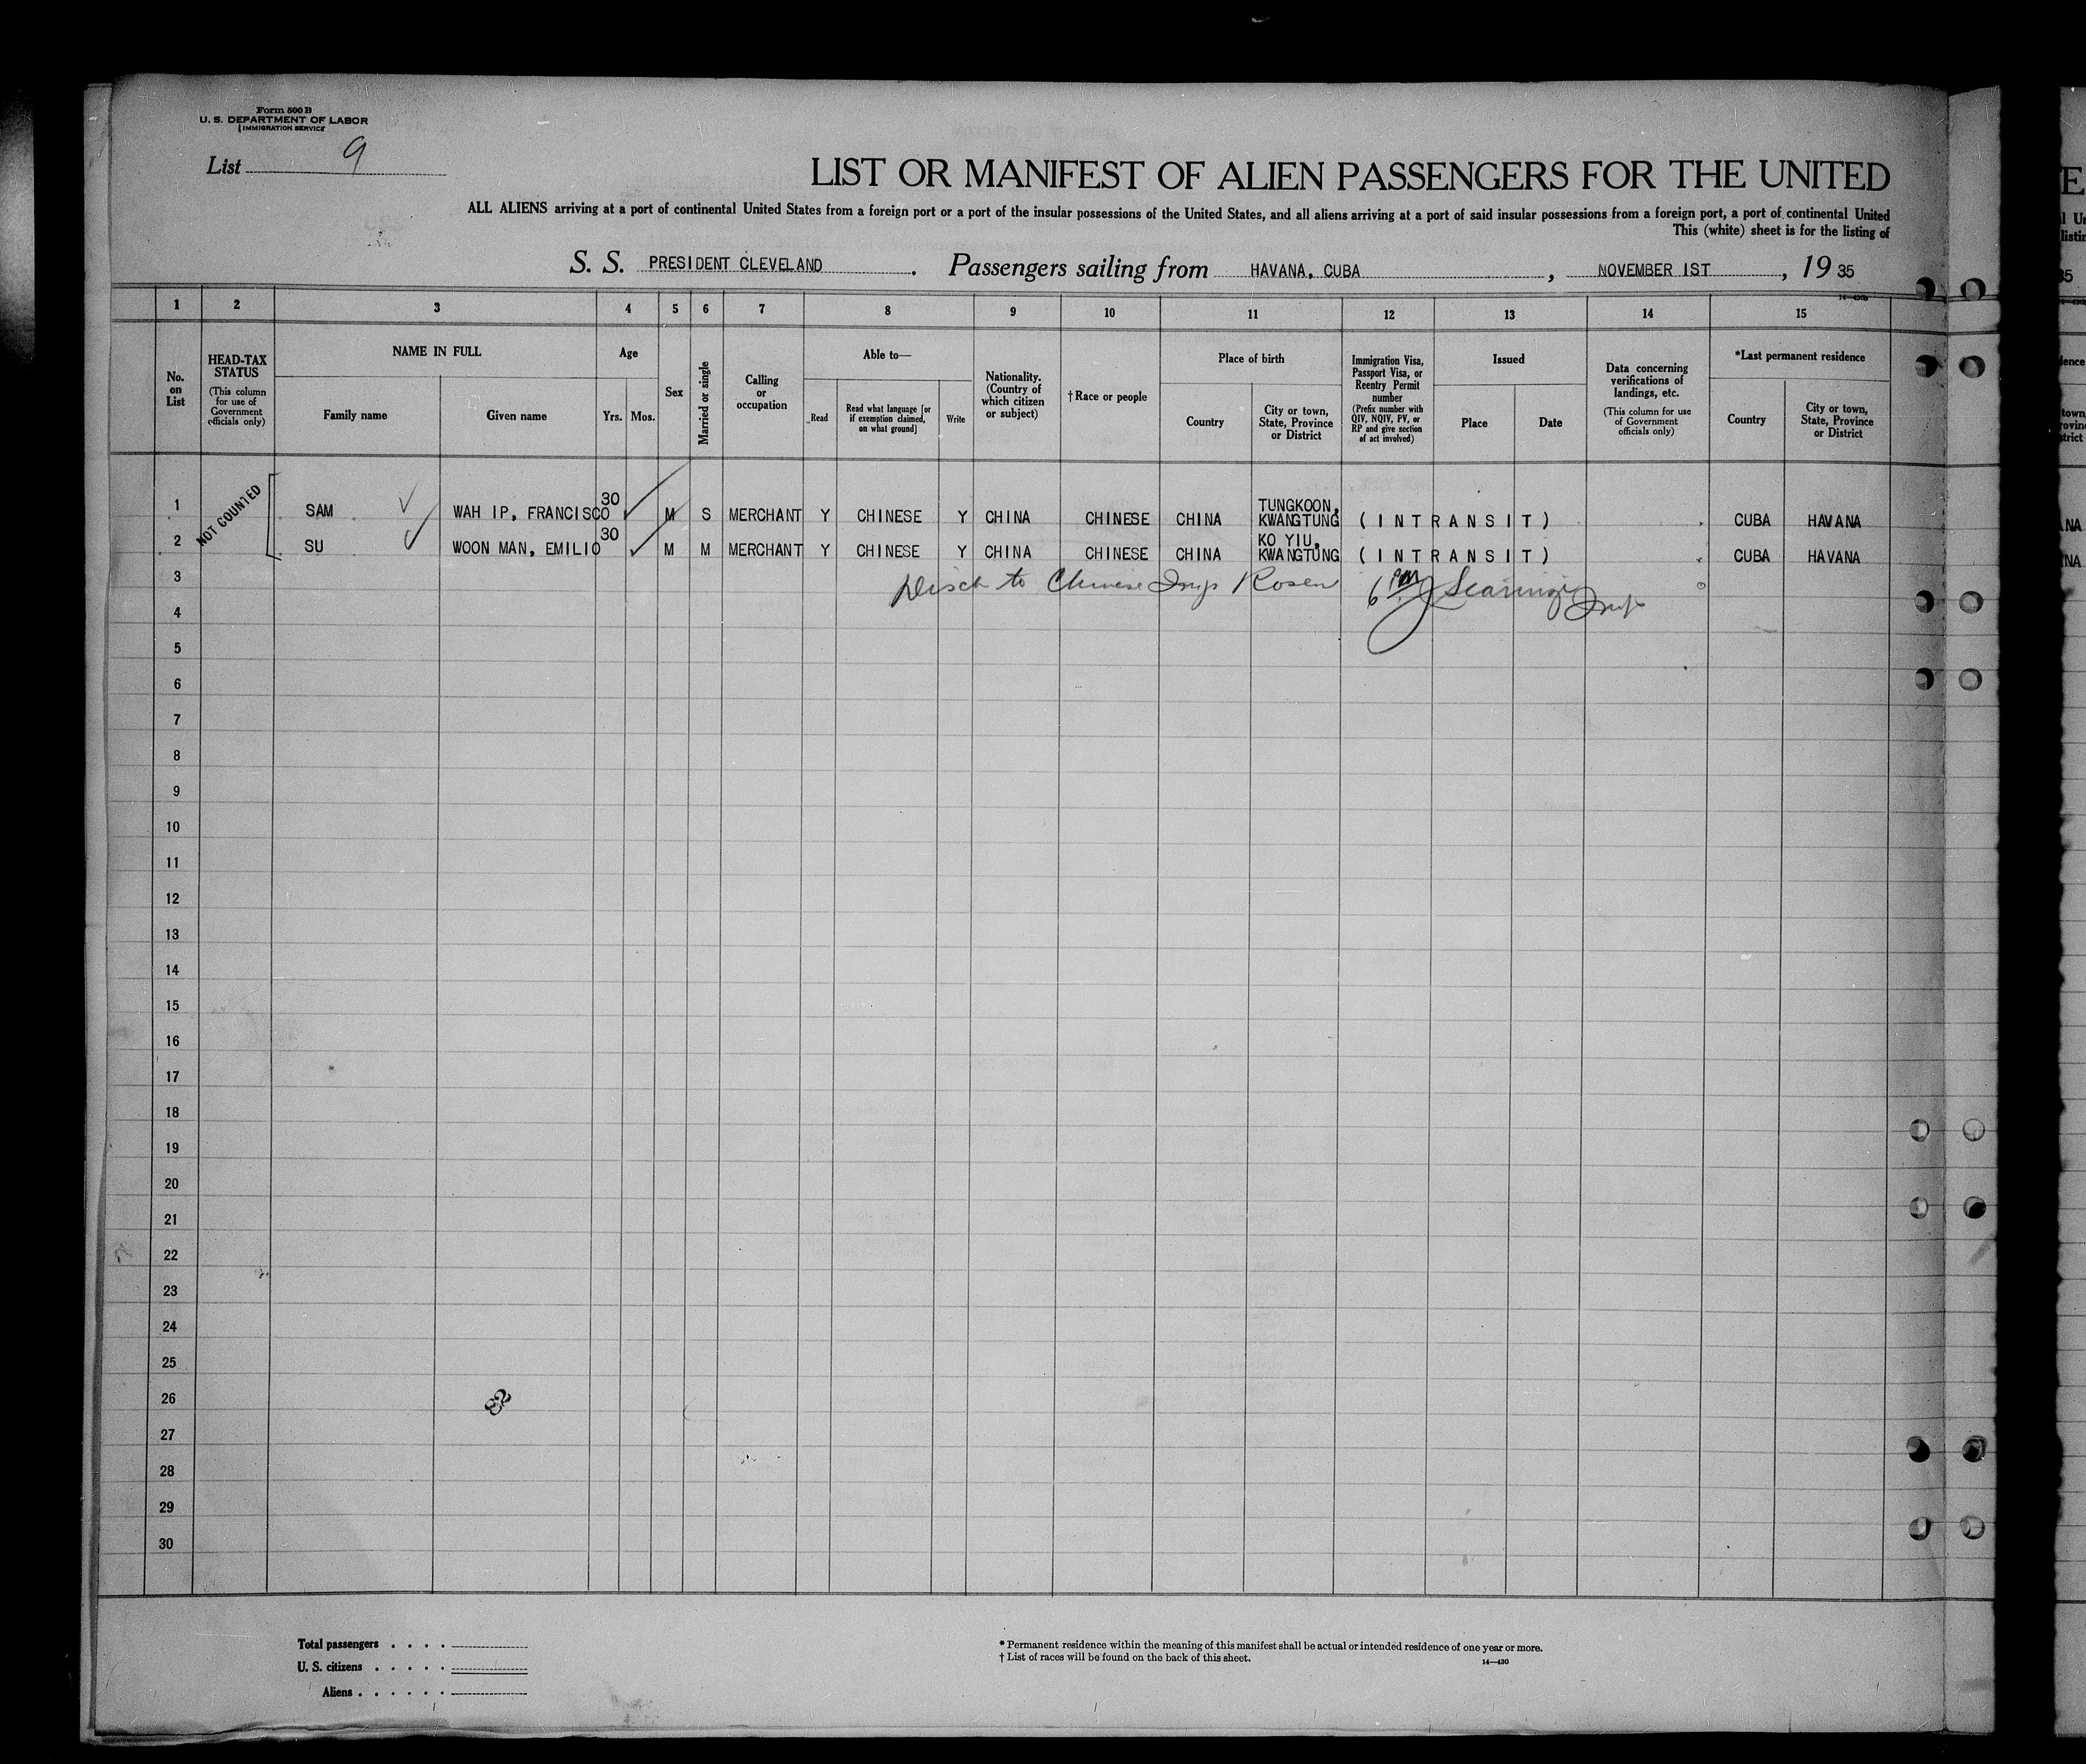 Form 500 B
U. S. DEPARTMENT OF LABOR
IMMIGRATION SERVICE
List 9
LIST OR MANIFEST OF ALIEN PASSENGERS FOR THE UNITED
ALL ALIENS arriving at a port of continental United States from a foreign port or a port of the insular possessions of the United States, and all aliens arriving at a port of said insular possessions from a foreign port, a port of continental United
This (white) sheet is for the listing of
S. S. PRESIDENT CLEVELAND. Passengers sailing from HAVANA, CUBA, NOVEMBER 1ST, 19 35
1 2 3 4 5 6 7 8 9 10 11 12 13 14 15
No. on List
HEAD-TAX STATUS
(This column for use of Government officials only)
NAME IN FULL
Family name Given name
Age
Yrs. Mos.
Sex
Married or single
Calling or occupation
Able to—
Read
Read what language [or if exemption claimed, on what ground]
Write
Nationality. (Country of which citizen or subject)
†Race or people
Place of birth
Country
City or town, State, Province or District
Immigration Visa, Passport Visa, or Reentry Permit number
(Prefix number with QIV, NQIV, PV, or RP and give section of act involved)
Issued
Place Date
Data concerning verifications of landings, etc.
(This column for use of Government officials only)
*Last permanent residence
Country
City or town, State, Province or District
NOT COUNTED
1 SAM WAH IP, FRANCISCO 30 M S MERCHANT Y CHINESE Y CHINA CHINESE CHINA TUNGKOON, KWANGTUNG (INTRANSIT) CUBA HAVANA
2 SU WOON MAN, EMILIO 30 M M MERCHANT Y CHINESE Y CHINA CHINESE CHINA KO YIU, KWANGTUNG (INTRANSIT) CUBA HAVANA
3 Disch to Chinese Insp Rosen 6 PM
4
5
6
7
8
9
10
11
12
13
14
15
16
17
18
19
20
21
22
23
24
25
26
27
28
29
30
Total passengers
U. S. citizens
Aliens
* Permanent residence within the meaning of this manifest shall be actual or intended residence of one year or more.
† List of races will be found on the back of this sheet.
14—430